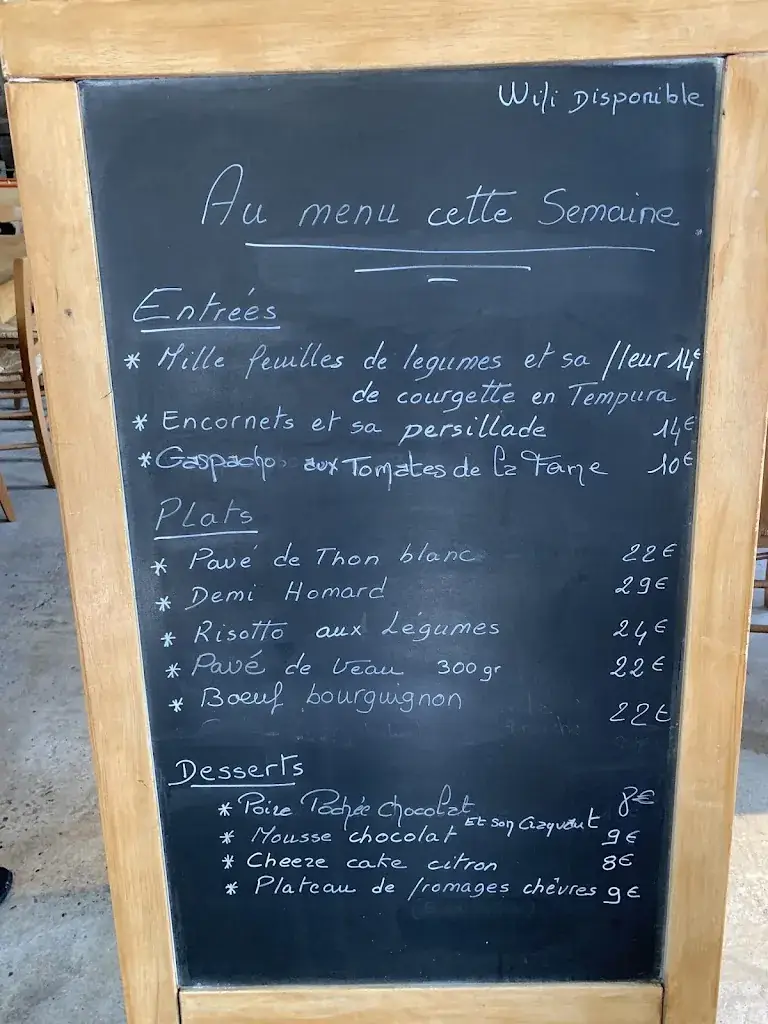 Wifi Disponible
Au menu cette Semaine
Entreés
* Mille feuilles de legumes et sa fleur 14€
de courgette en Tempura
* Encornets et sa persillade 14€
* Gaspacho aux Tomates de la Farre 10€
Plats
* Pavé de Thon blanc 22€
* Demi Homard 29€
* Risotto aux Légumes 24€
* Pavé de Veau 300gr 22€
* Boeuf bourguignon 22€
Desserts
* Poire Pochée chocolat 8€
Et son Craquant
* Mousse chocolat 9€
* Cheeze cake citron 8€
* Plateau de fromages chèvres 9€